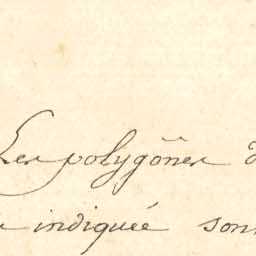 Les polygônes
indiquée son